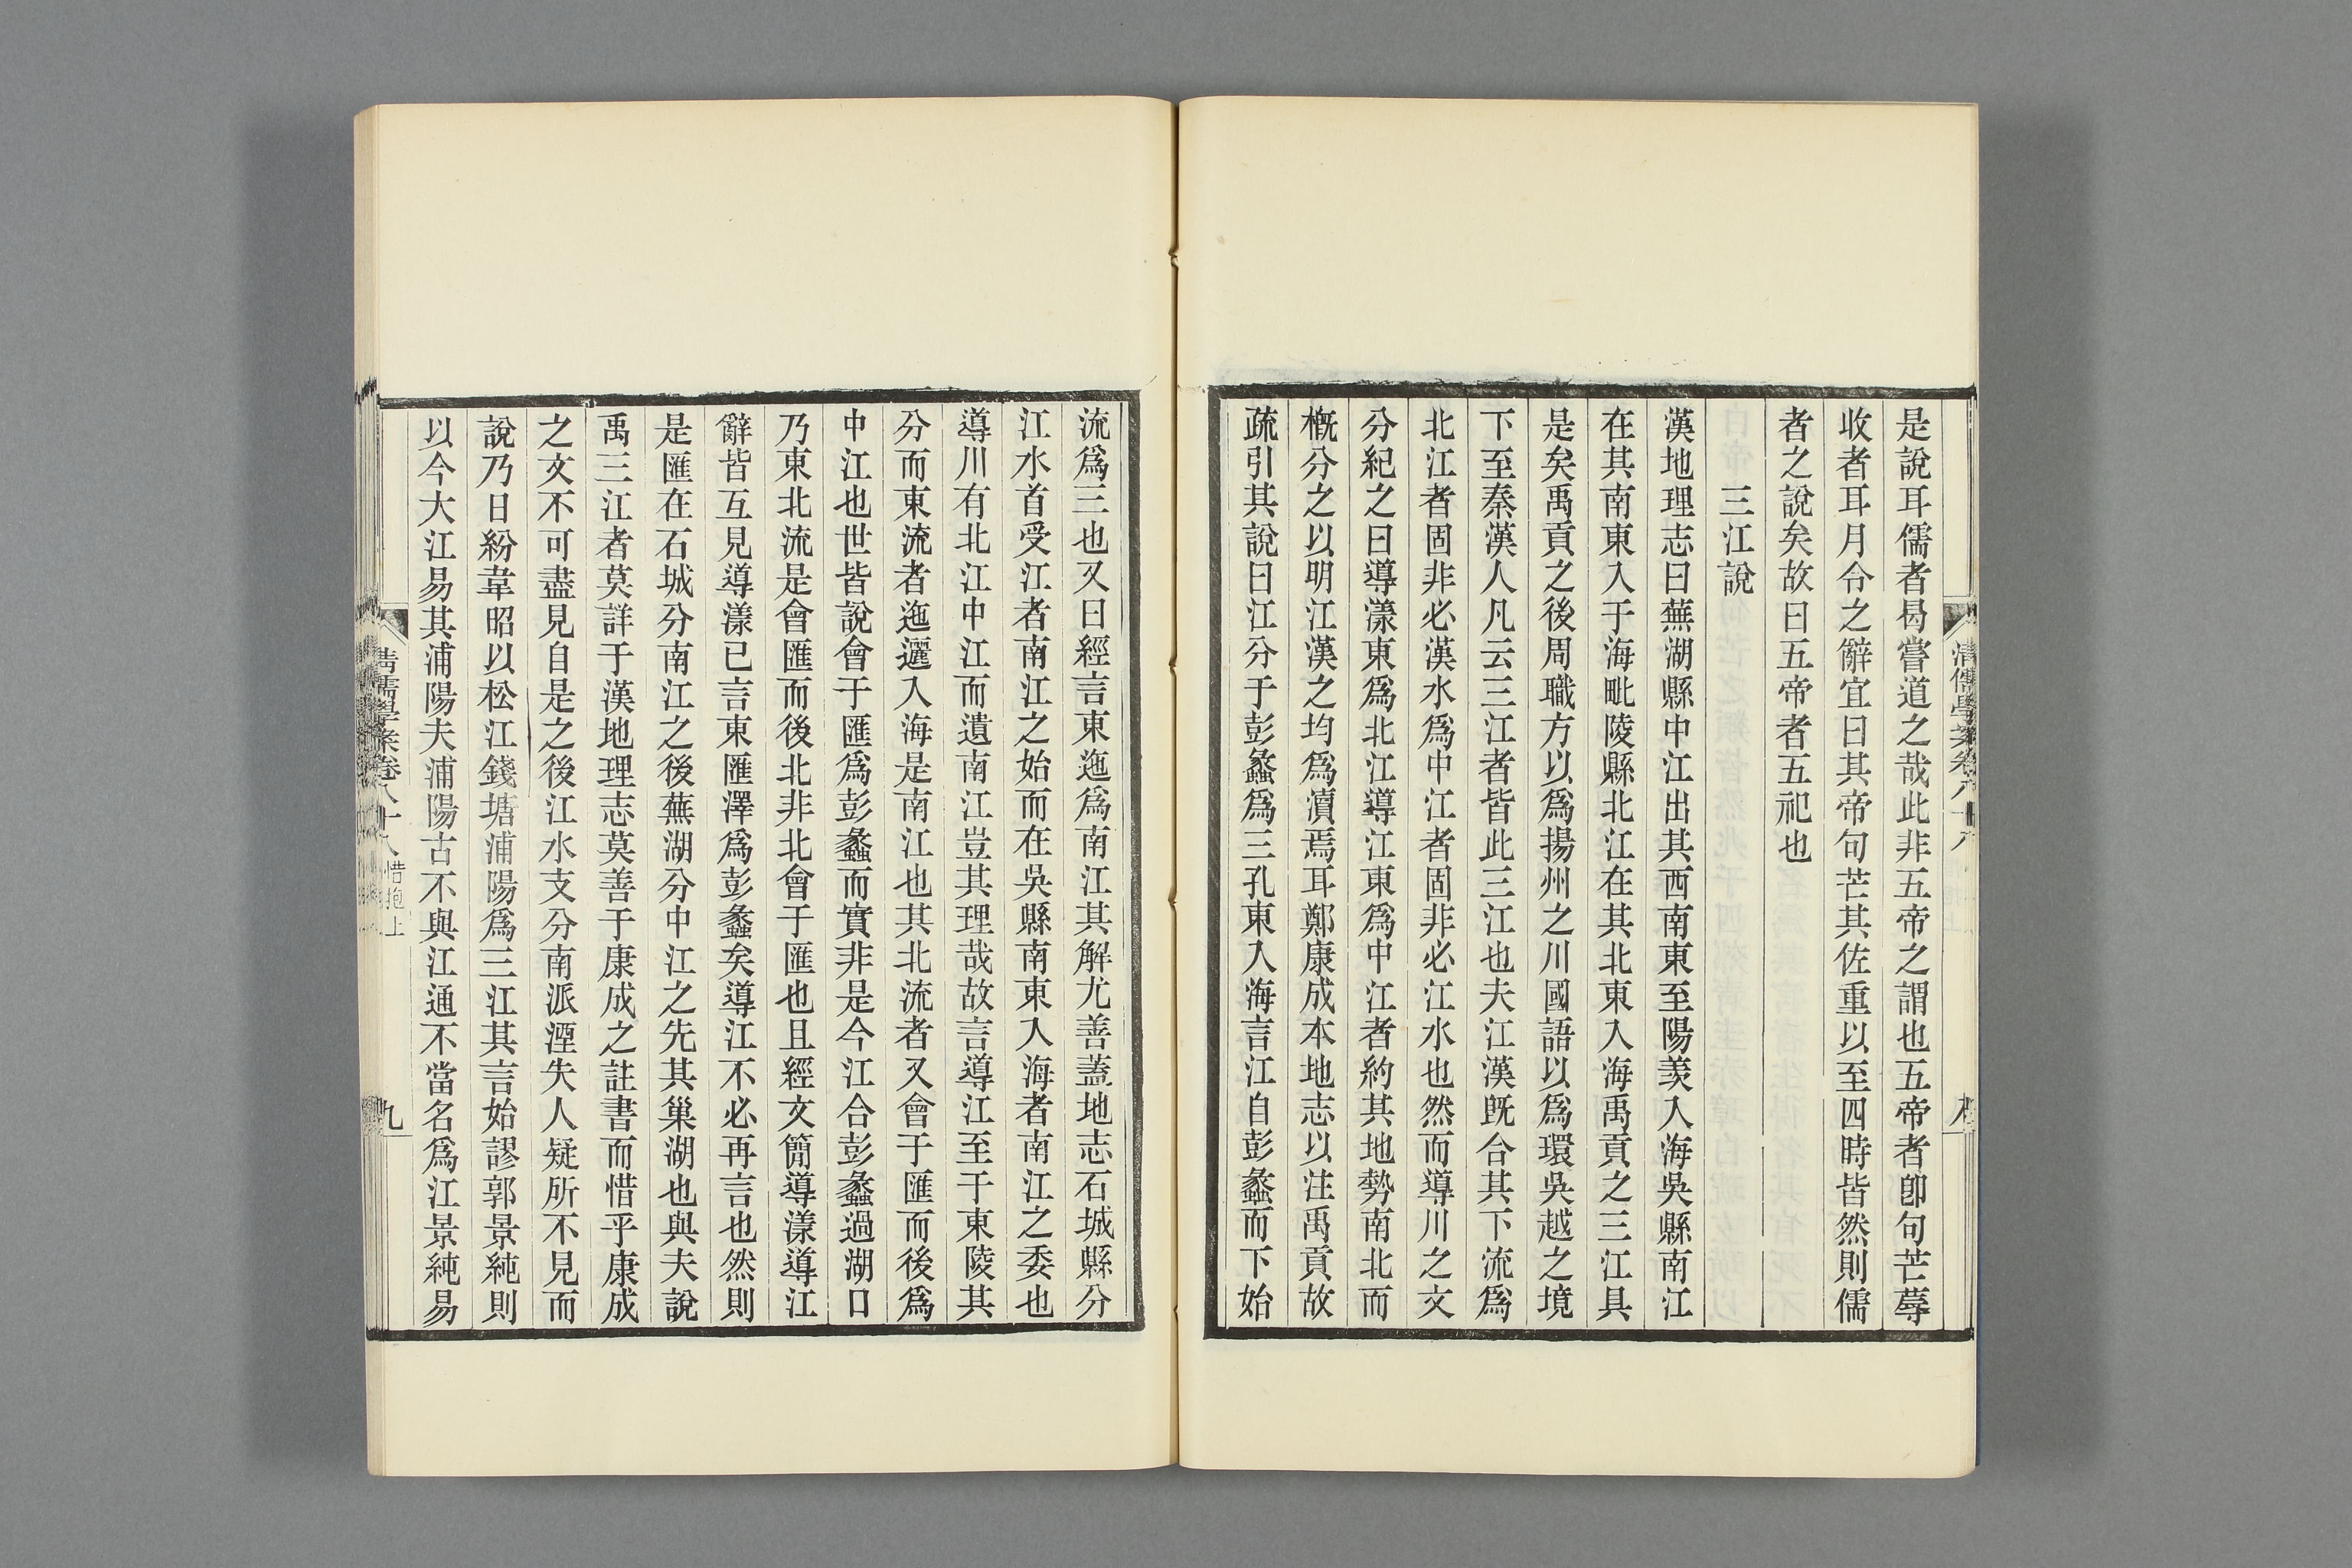 是說耳儒者曷嘗道之哉此非五帝之謂也五帝者卽句芒蓐
收者耳月令之辭宜曰其帝句芒其佐重以至四時皆然則儒
者之說矣故曰五帝者五祀也
三江說
漢地理志曰蕪湖縣中江出其西南東至陽羨入海吳縣南江
在其南東入于海毗陵縣北江在其北東入海禹貢之三江具
是矣禹貢之後周職方以爲揚州之川國語以爲環吳越之境
下至秦漢人凡云三江者皆此三江也夫江漢旣合其下流爲
北江者固非必漢水爲中江者固非必江水也然而導川之文
分紀之曰導漾東爲北江導江東爲中江者約其地勢南北而
槪分之以明江漢之均爲瀆焉耳鄭康成本地志以注禹貢故
疏引其說曰江分于彭蠡爲三孔東入海言江自彭蠡而下始
流爲三也又曰經言東迤爲南江其解尤善蓋地志石城縣分
江水首受江者南江之始而在吳縣南東入海者南江之委也
導川有北江中江而遺南江豈其理哉故言導江至于東陵其
分而東流者迤邐入海是南江也其北流者又會于匯而後爲
中江也世皆說會于匯爲彭蠡而實非是今江合彭蠡過湖口
乃東北流是會匯而後北非北會于匯也且經文簡導漾導江
辭皆互見導漾已言東匯澤爲彭蠡矣導江不必再言也然則
是匯在石城分南江之後蕪湖分中江之先其巢湖也與夫說
禹三江者莫詳于漢地理志莫善于康成之註書而惜乎康成
之文不可盡見自是之後江水支分南派湮失人疑所不見而
說乃日紛韋昭以松江錢塘浦陽爲三江其言始謬郭景純則
以今大江易其浦陽夫浦陽古不與江通不當名爲江景純易
清儒學案卷八十八 惜抱上
九